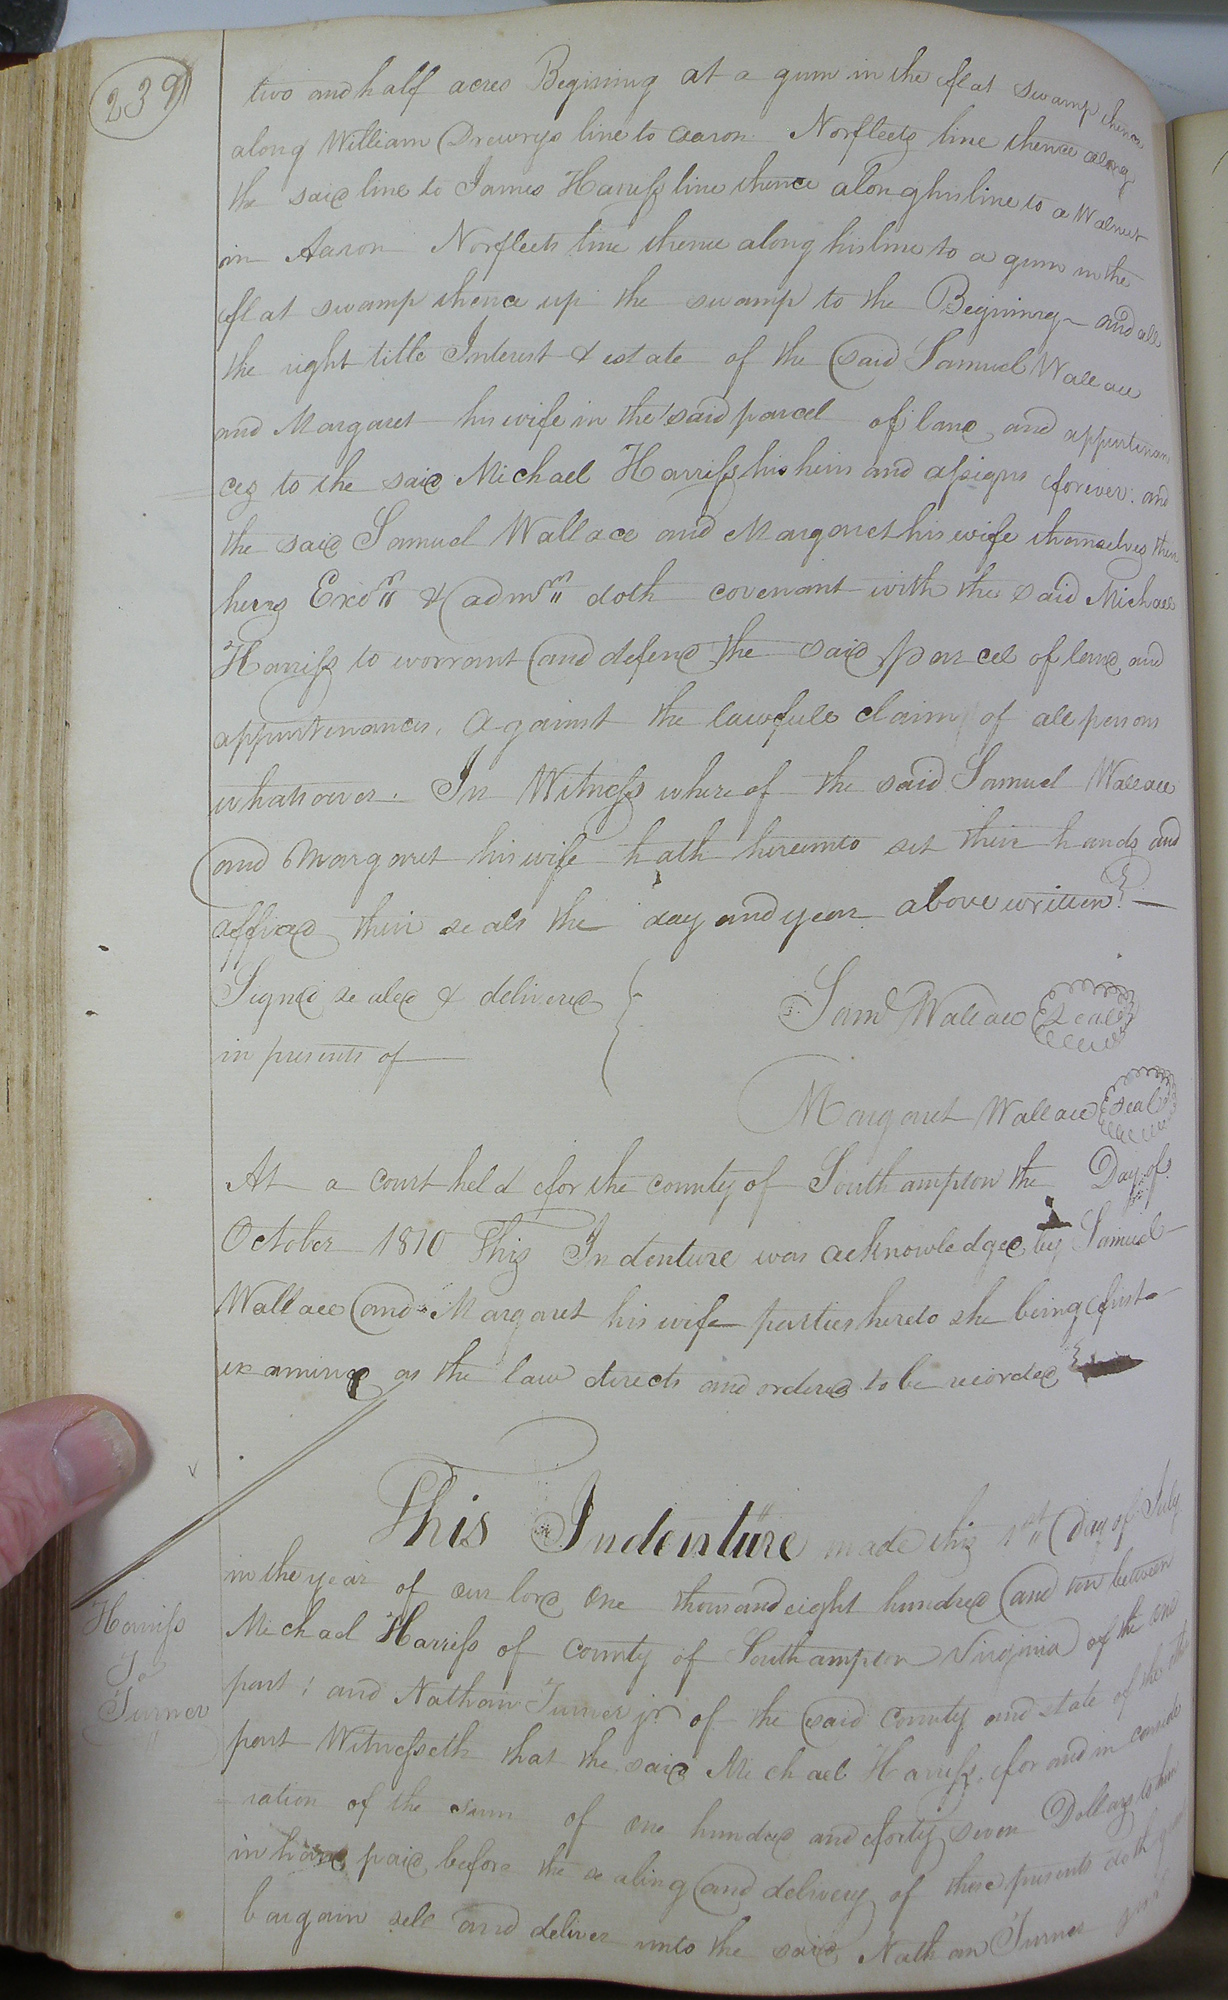 239
two and half acres Begining at a gum in the flat swamp thence
along William Drewrys line to aaron Norfleets line thence along
the said line to James Harriss line thence along his line to a Walnut
in Aaron Norfleets line thence along his line to a gum in the
flat swamp thence up the swamp to the Begining and all
the right title Interest & estate of the said Samuel Wallace
and Margaret his wife in the said parcel of land and appurtenan
ces to the said Michael Harriss his heirs and assigns forever. and
the said Samuel Wallace and Margaret his wife themselves their
heirs Exors & admrs doth covenant with the said Michael
Harriss to warrant and defend the said parcel of land and
appurtenances, Against the lawfull claim of all persons
whatsoever. In Witness whereof the said Samuel Wallace
and Margaret his wife hath hereunto set their hands and
affixed their seals the day and year above written
Signed sealed & delivered
in presents of
Saml Wallace Seal
Margaret Wallace Seal
At a court held for the county of Southampton the Day of
October 1810 This Indenture was acknowledged by Samuel
Wallace and Margaret his wife parties hereto she being first
examined as the law directs and ordered to be recorded
This Indenture made this 1st Day of July
in the year of our lord one thousand eight hundred and ten between
Harriss
To
Turner
Michael Harriss of county of Southampton Virginia of the one
part; and Nathan Turner jr of the said county and state of the other
part Witnesseth that the said Michael Harriss for and in conside
=ration of the sum of one hundred and forty seven Dollars to him
in hand paid, before the sealing and delivery of these presents doth grant
bargain sell and deliver unto the said Nathan Turner